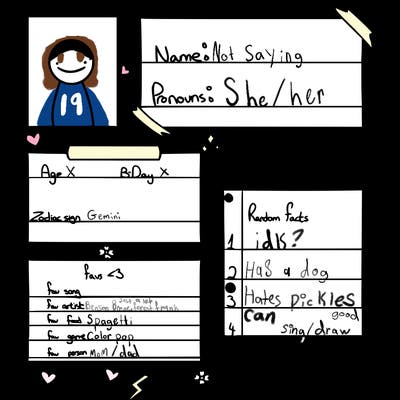 19
Name: Not Saying
Pronouns: She/her
Age X BDay X
Zodiac sign Gemini
favs <3
fav song
fav artist Benson Boone,
fav food Spagetti
fav game Color pop
fav person Mom/dad
Random facts
1 idk?
2 Has a dog
3 Hates pickles
4 can sing/draw good